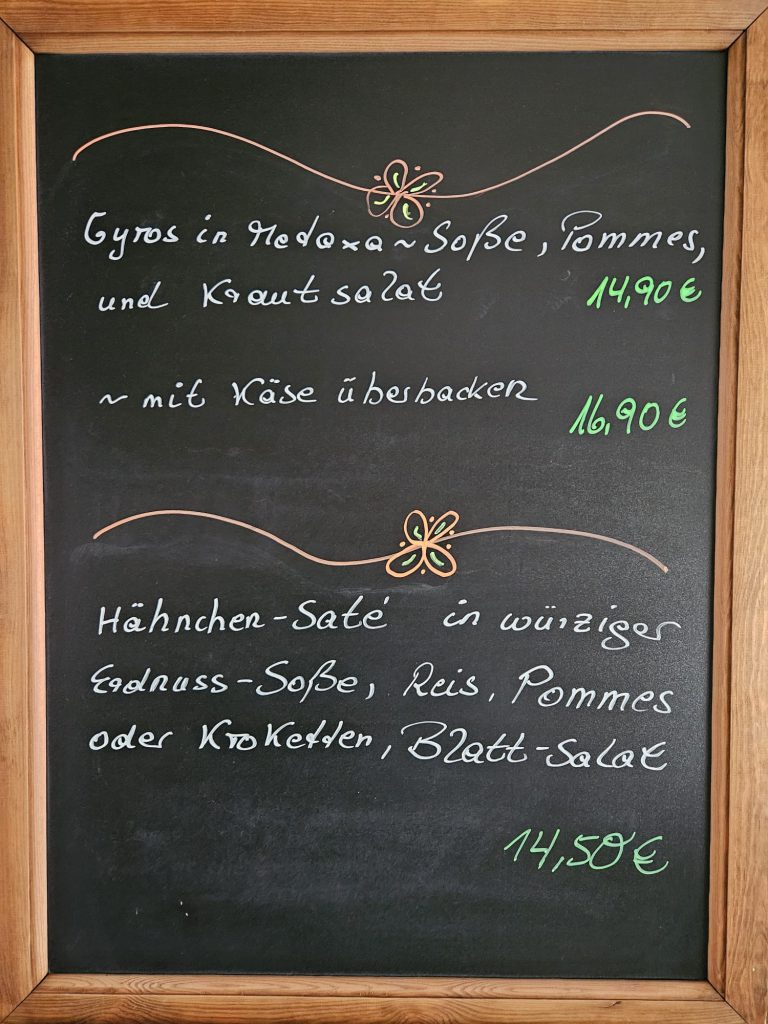 Gyros in Medaxa~Soße, Pommes,
und Krautsalat 14,90 €
~ mit Käse überbacken 16,90 €
Hähnchen-Saté in würziger
Erdnuss-Soße, Reis, Pommes
oder Kroketten, Blatt-Salat
14,50 €